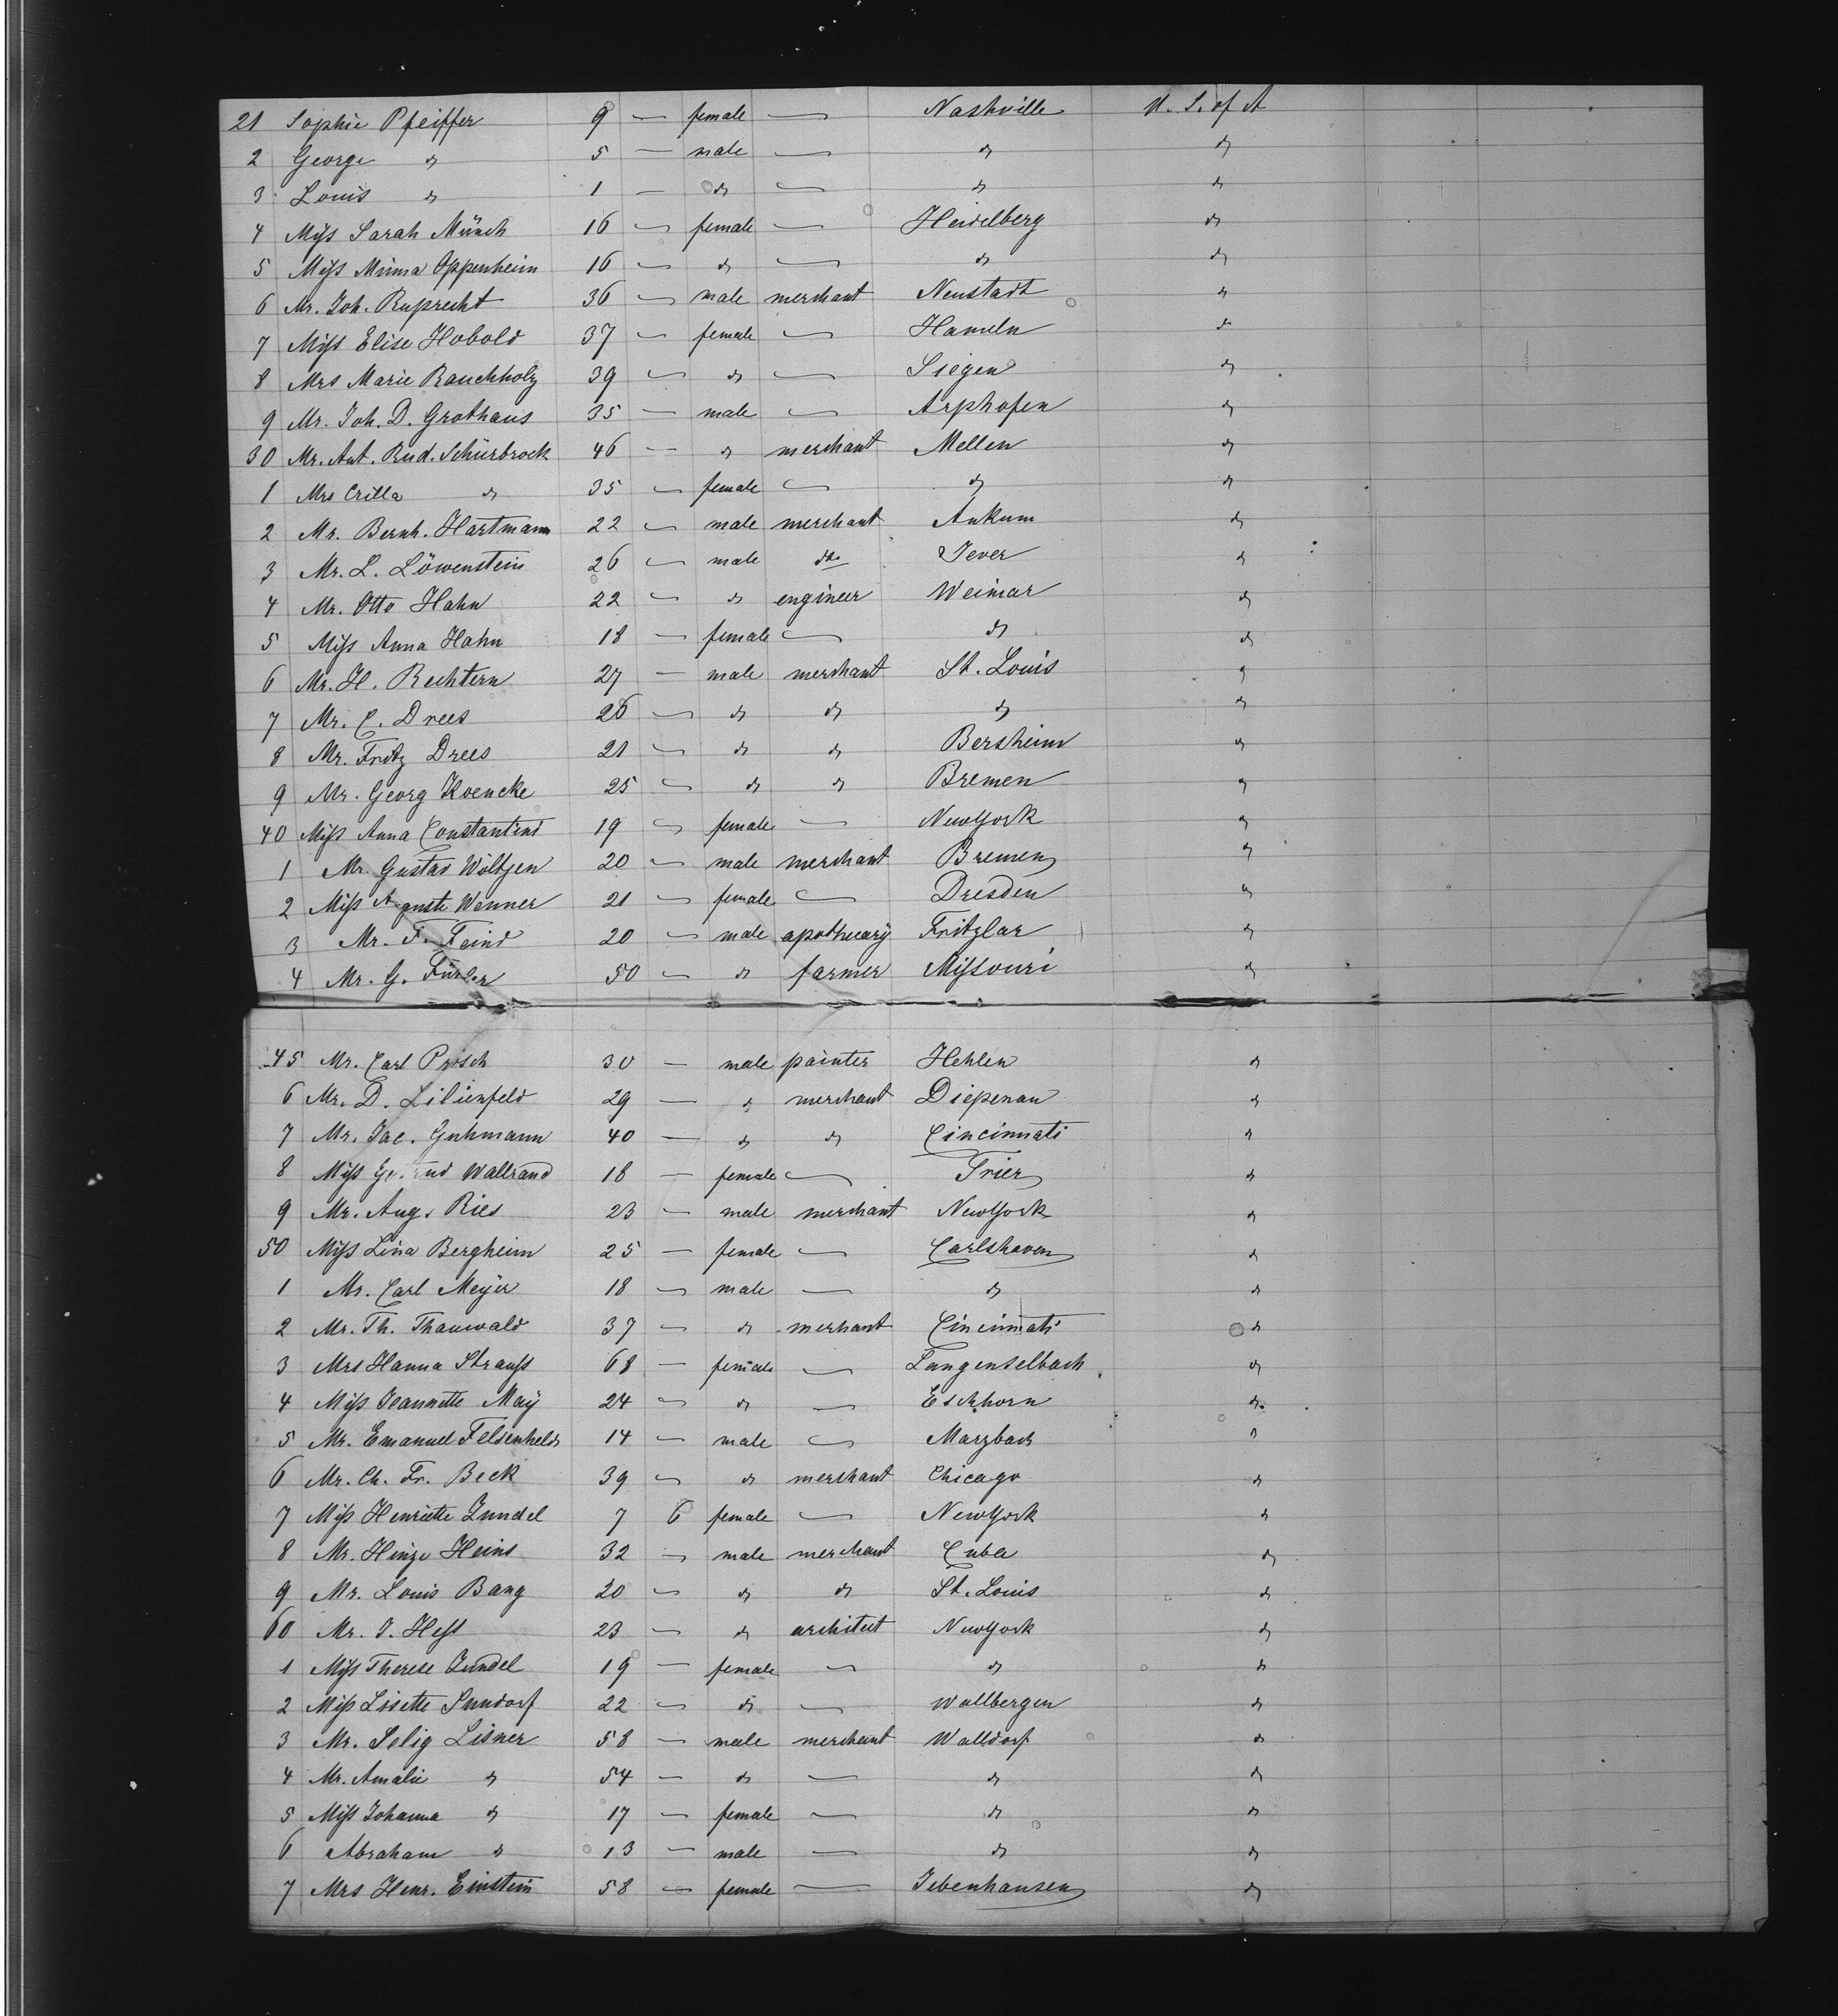 21 Sophie Pfeiffer 9 — female — Nashville U. S. of A
2 George do 5 — male — do do
3 Louis do 1 — do — do do
4 Miss Sarah Münch 16 — female — Heidelberg do
5 Miss Minna Oppenheim 16 — do — do do
6 Mr. Joh. Ruprecht 36 — male merchant Neustadt do
7 Miss Elise Hobold 37 — female — Hameln do
8 Mrs Marie Rauchholz 39 — do — Siegen do
9 Mr. Joh. D. Grothaus 35 — male — Arphofen do
30 Mr. Ant. Rud. Schürbrock 46 — do merchant Mellen do
1 Mrs Crilla do 35 — female — do do
2 Mr. Bernh. Hartmann 22 — male merchant Ankum do
3 Mr. L. Löwenstein 26 — male do Jever do
4 Mr. Otto Hahn 22 — do engineer Weimar do
5 Miss Anna Hahn 18 — female — do do
6 Mr. H. Rechtern 27 — male merchant St. Louis do
7 Mr. C. Drees 26 — do do do do
8 Mr. Fritz Drees 21 — do do Bersheim do
9 Mr. Georg Koencke 25 — do do Bremen do
40 Miss Anna Constantini 19 — female — NewYork do
1 Mr. Gustav Wöltjen 20 — male merchant Bremen do
2 Miss Auguste Wenner 21 — female — Dresden do
3 Mr. F. Feind 20 — male apothecary Fritzlar do
4 Mr. G. 50 — do farmer Missouri do
45 Mr. Carl Prösch 30 — male painter Hehlen do
6 Mr. D. Lilienfeld 29 — do merchant Diepenau do
7 Mr. Jac. Guhmann 40 — do do Cincinnati do
8 Miss Wallrand 18 — female — Trier do
9 Mr. Aug. Ries 23 — male merchant NewYork do
50 Miss Lina Bergheim 25 — female — Carlshaven do
1 Mr. Carl Meyer 18 — male — do do
2 Mr. Th. Thauwald 37 — do merhant Cincinnati do
3 Mrs Hanna Strauss 68 — female — Langenselbach do
4 Miss Jeannette May 24 — do — Eschhorn do
5 Mr. Emanuel Felsenheld 14 — male — Marzbach do
6 Mr. Ch. Fr. Beck 39 — do merchant Chicago do
7 Miss Henriette Zundel 7 6 female — NewYork do
8 Mr. Hinze Heins 32 — male merchant Cuba do
9 Mr. Louis Bang 20 — do do St. Louis do
60 Mr. J. Hess 23 — do architect NewYork do
1 Miss Therese Zundel 19 — female — do do
2 Miss Lisette Sundorf 22 — do — Wallbergen do
3 Mr. Selig Lisner 58 — male merchant Walldorf do
4 Mr. Amalie do 54 — do — do do
5 Miss Johanna do 17 — female — do do
6 Abraham do 13 — male — do do
7 Mrs Henr. Einstein 58 — female — Jebenhausen do